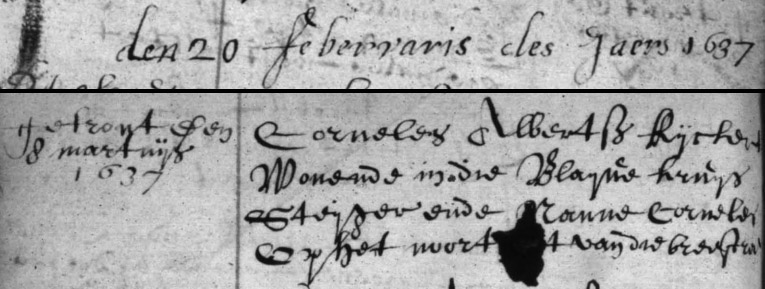 den 20 febervaris des Jaers 1637
getrout den
8 martuijs
1637
Corneles Albertsz Kijcker
Wonende in die Blaijue kruijs
Steijger ende Nanne Corneles
Op het noort t van die breestra